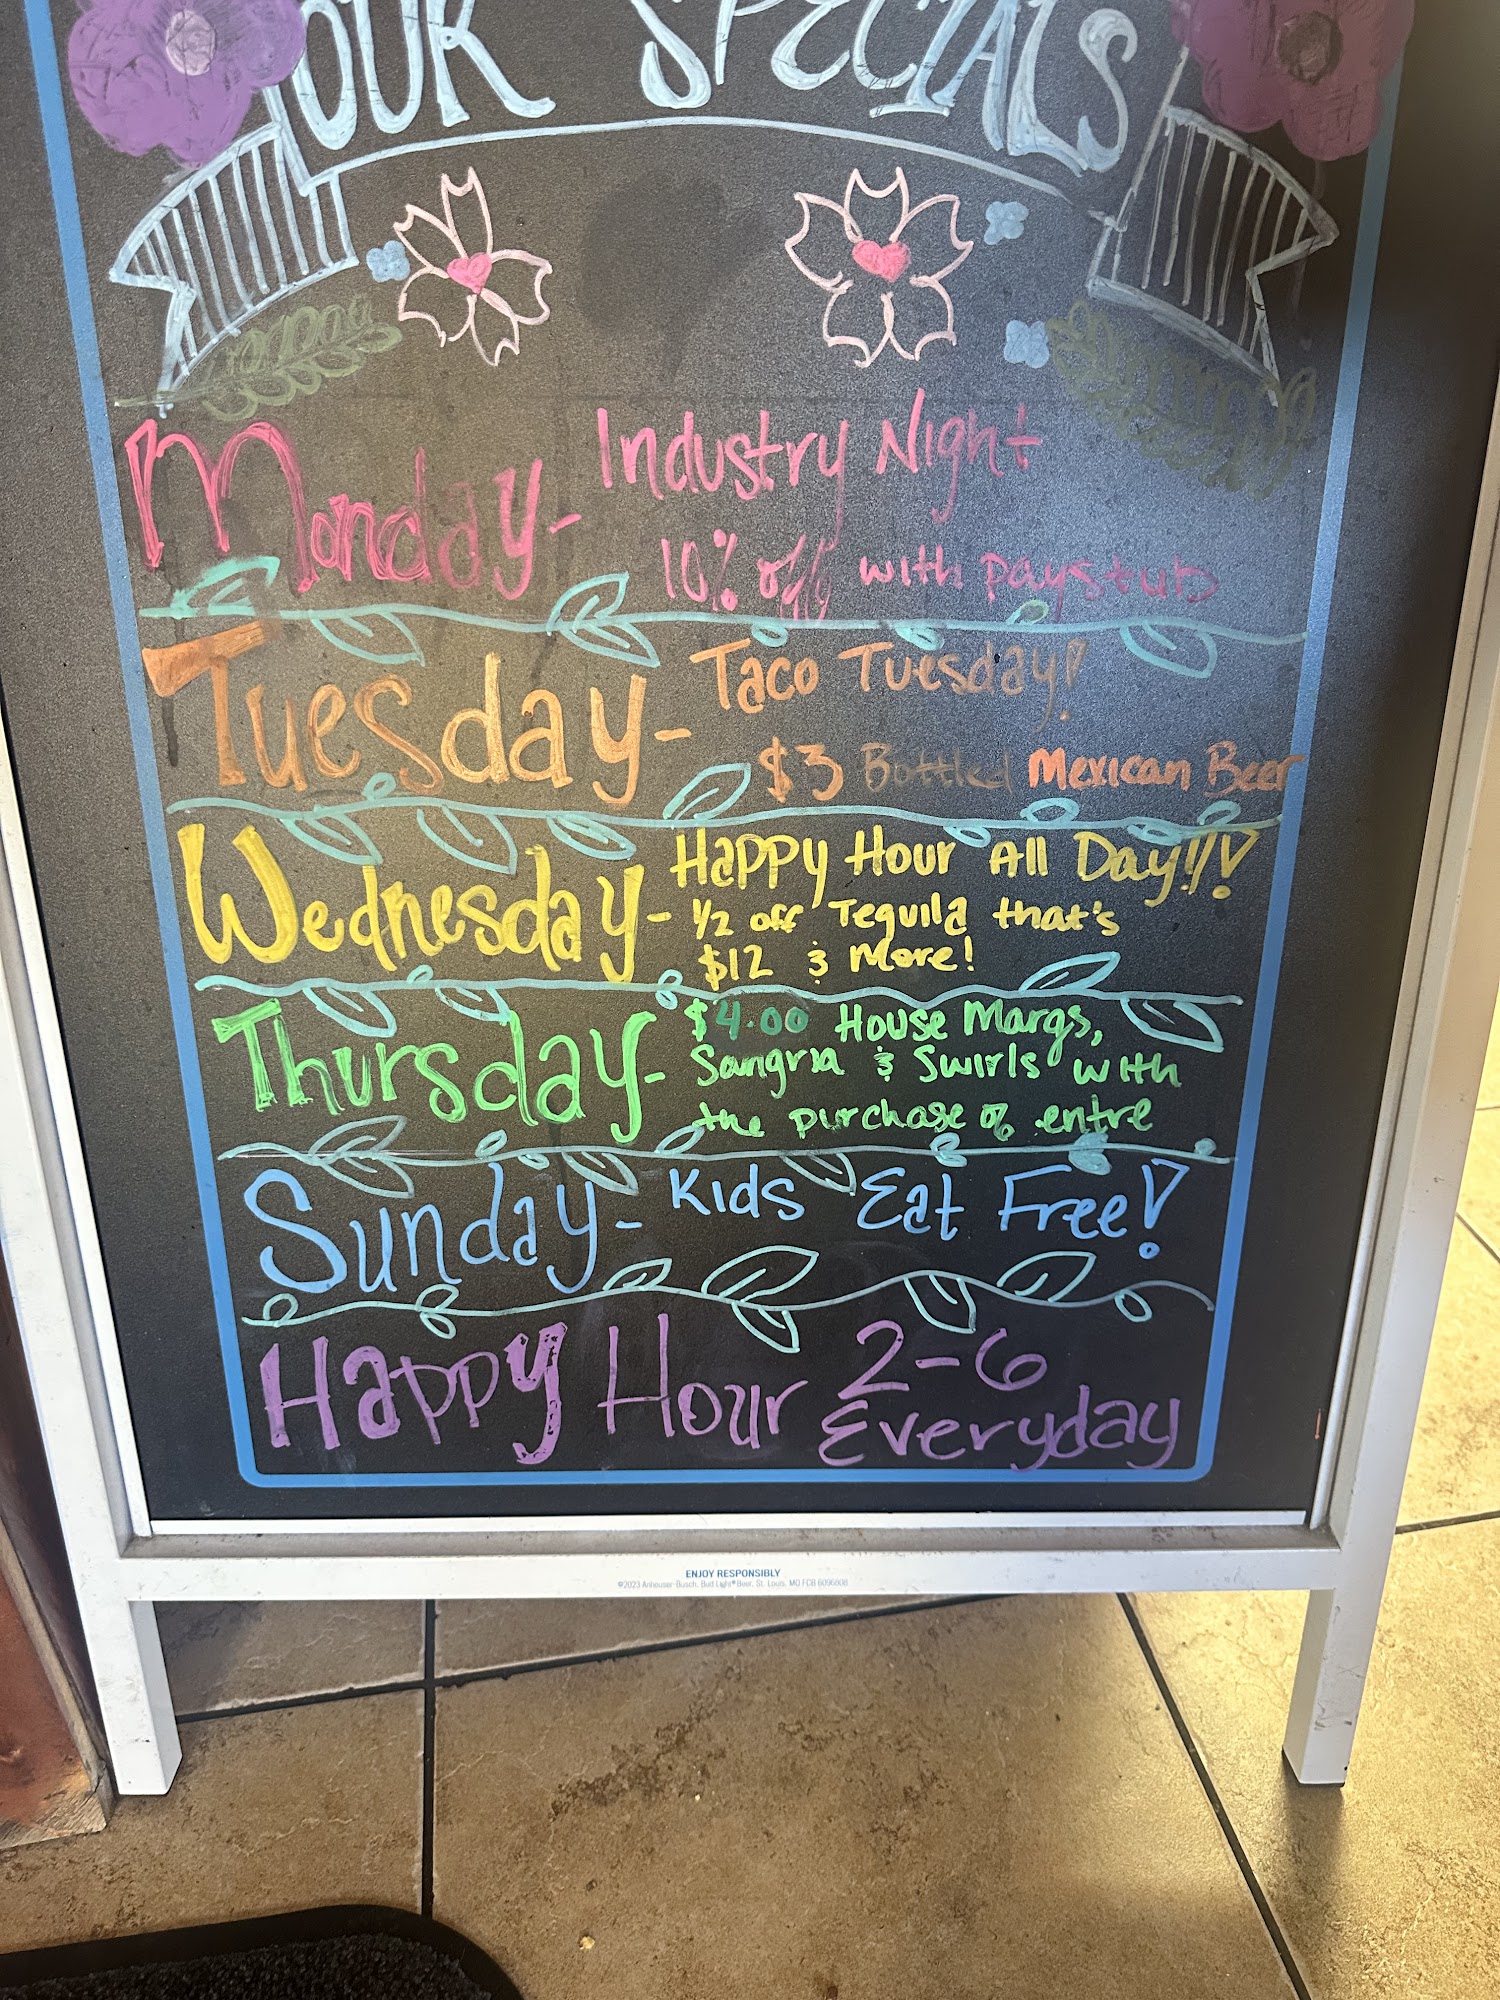 OUR SPECIALS
Monday- Industry Night
10% off with paystub
Tuesday- Taco Tuesday!
$3 Bottled Mexican Beer
Wednesday- Happy Hour All Day!!!
1/2 off Tequila that's
$12 & More!
Thursday- $4.00 House Margs,
Sangria & Swirls with
the purchase of entre
Sunday- Kids Eat Free!
Happy Hour 2-6
Everyday
ENJOY RESPONSIBLY
©2023 Anheuser-Busch, Bud Light® Beer, St. Louis, MO FCB 6096808